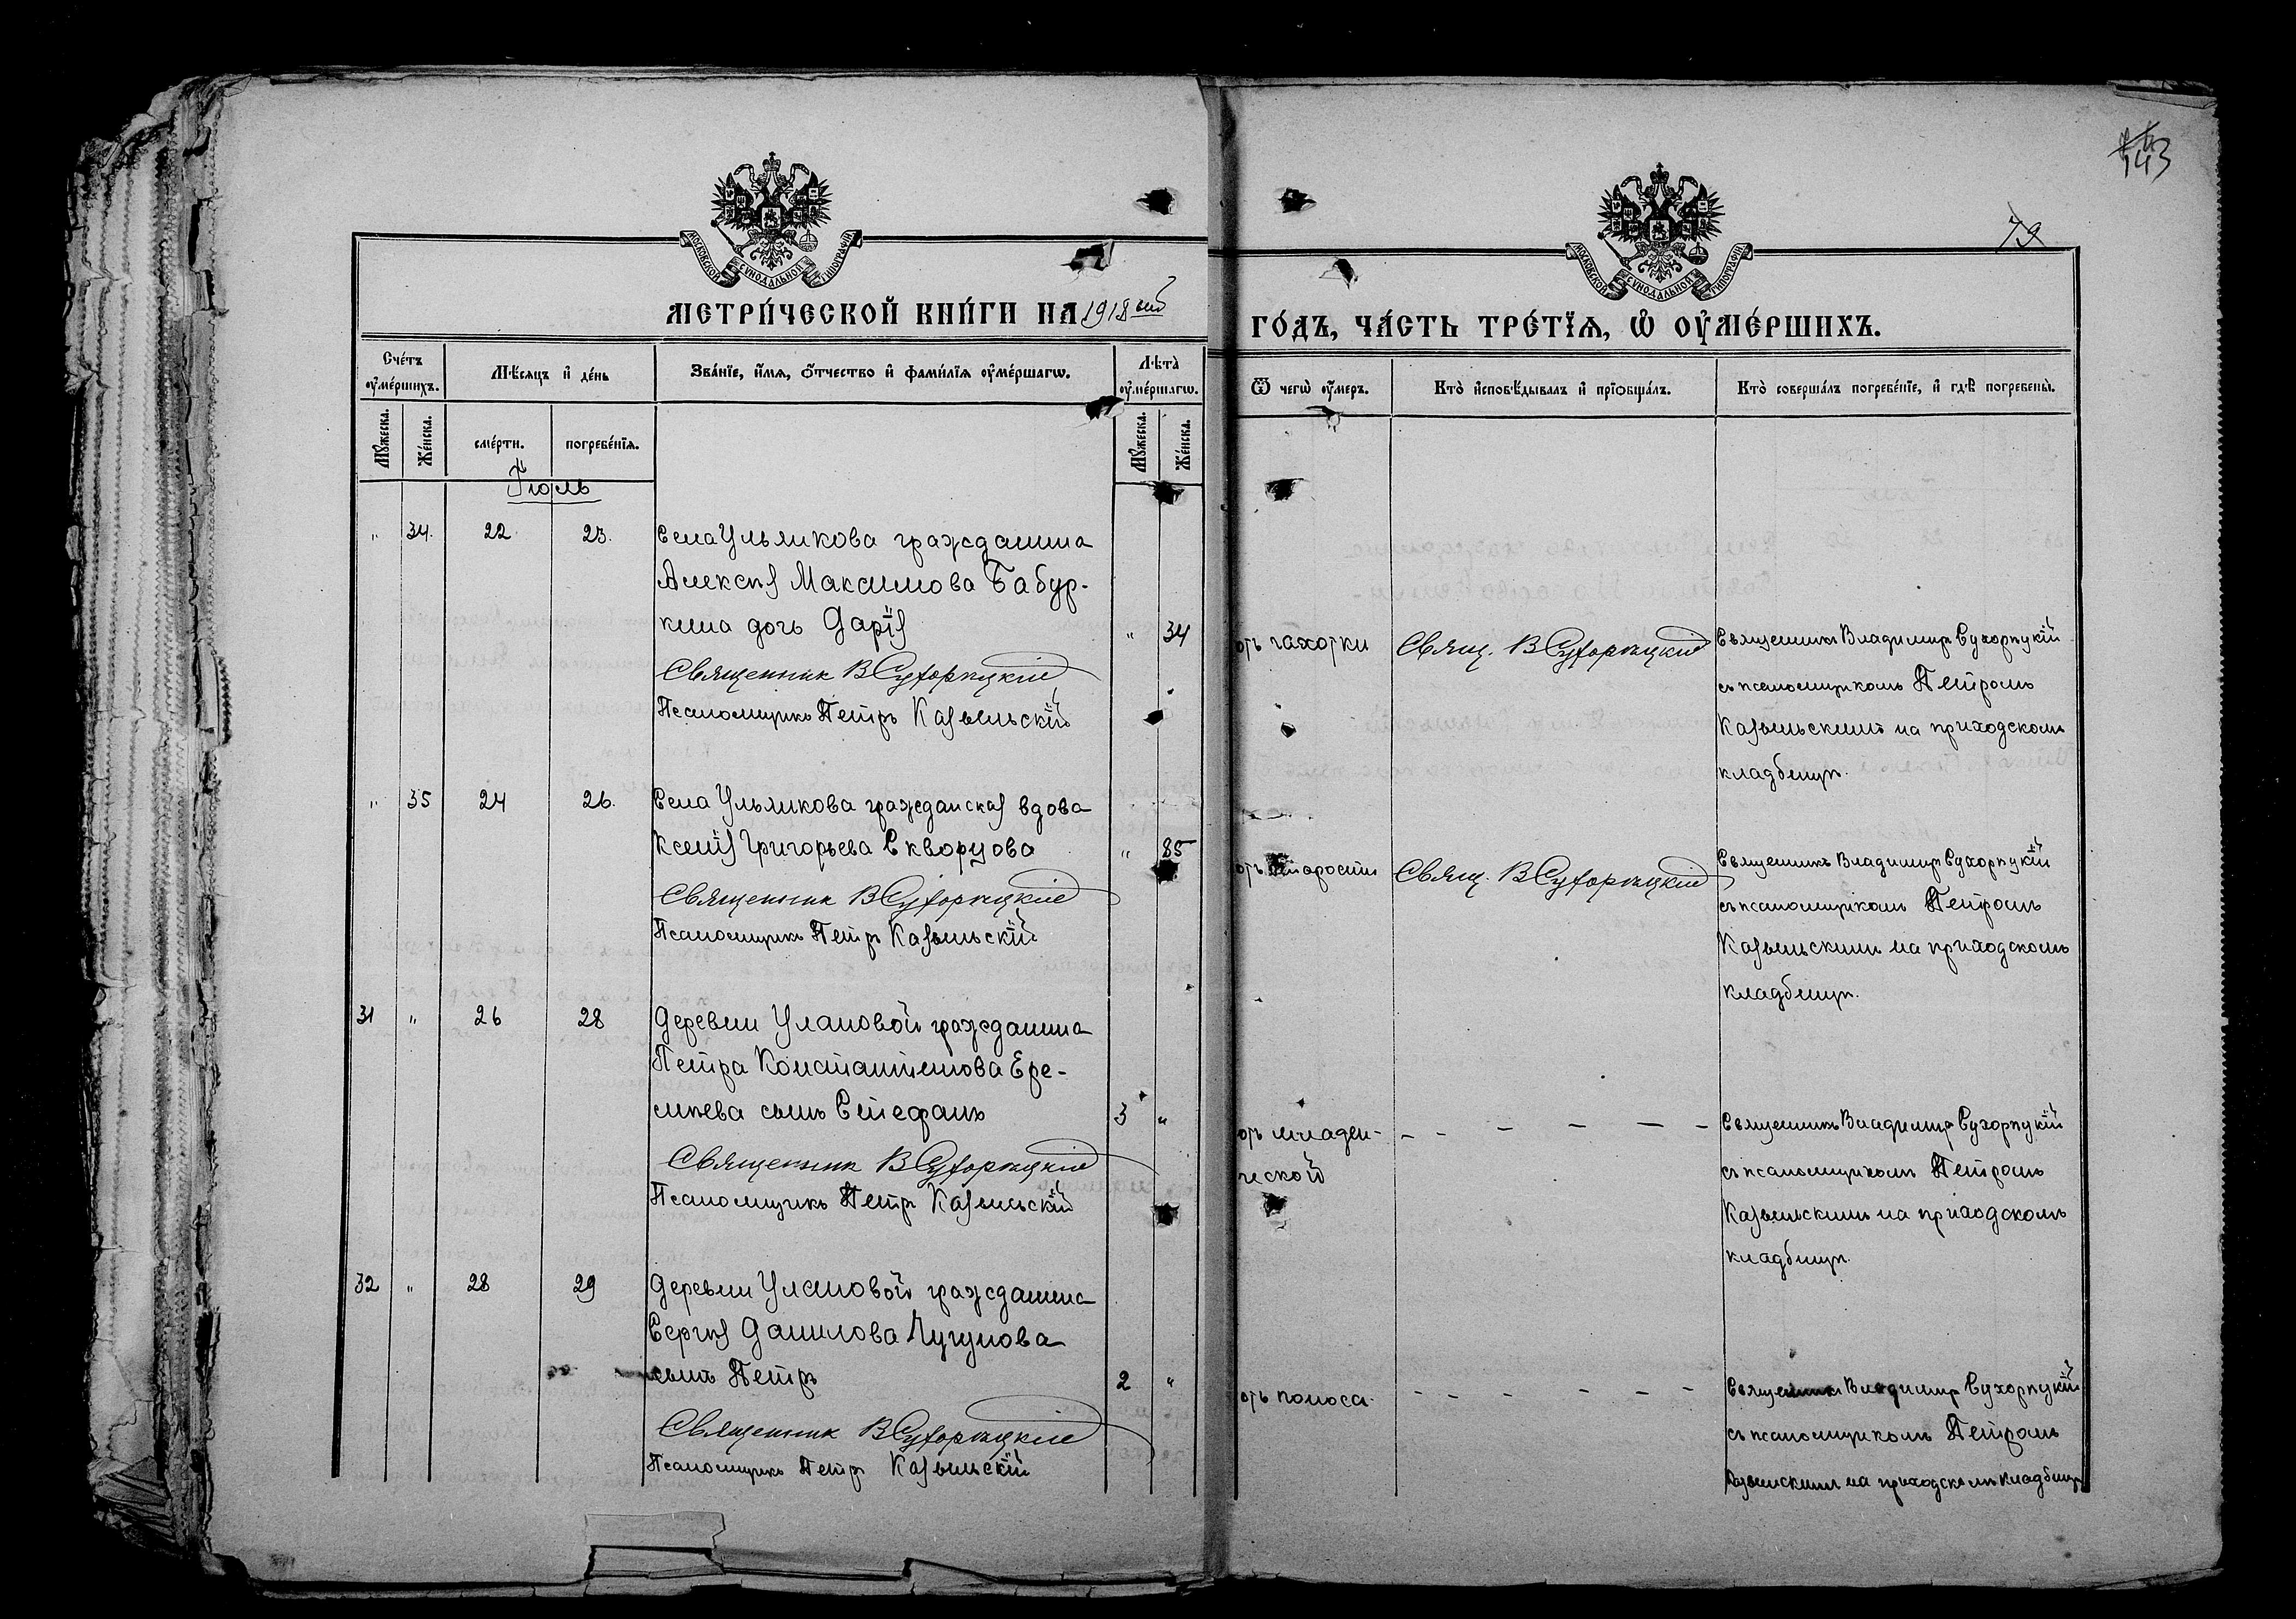 143
79
МОСКОВСКОЙ СѴНОДАЛЬНОЙ ТИПОГРАФІИ
МОСКОВСКОЙ СѴНОДАЛЬНОЙ ТИПОГРАФІИ
МЕТРИ́ЧЕСКОЙ КНИ́ГИ НА 1918 ый
ГО́ДЪ, ЧА́СТЬ ТРЕ́ТІѦ, Ѡ҆ ОУ҆МЕ́РШИХЪ.
Сче́тъ оу҆ме́ршихъ.
Мѣ́сяцъ и҆ де́нь
Зва́нїе, и҆́мѧ, о҆́тчество и҆ фами́лїѧ оу҆ме́ршагѡ.
Лѣ́та оу҆ме́ршагѡ.
Ѿ чегѡ̀ оу҆́меръ.
Кто̀ и҆сповѣ́дывалъ и҆ прїѡбща́лъ.
Кто̀ соверша́лъ погребе́нїе, и҆ гдѣ̀ погребены̀.
Мꙋ́жеска.
Же́нска.
сме́рти.
погребе́нїѧ.
Мꙋ́жеска.
Же́нска.
Іюль
" 34. 22 23. Села Ульянкова гражданина
Алексѣя Максимова Бабур-
кина дочь Дарія " 34
Священник В Сухорѣцкій
Псаломщикъ Петръ Казыльскій
отъ чахотки
Свящ. В Сухорѣцкій
Священникъ Владимир Сухорѣцкій
съ псаломщикомъ Петромъ
Казыльскимъ на приходскомъ
кладбищѣ.
" 35 24 26. Села Ульянкова гражданская вдова
Ксенія Григорьева Скворцова " 85
Священник В Сухорѣцкій
Псаломщикъ Петръ Казыльскій
отъ старости
Свящ. В Сухорѣцкій
Священникъ Владимир Сухорѣцкій
съ псаломщикомъ Петромъ
Казыльскимъ на приходскомъ
кладбищѣ.
31 " 26 28 Деревни Улановой гражданина
Петра Константинова Ере-
мѣева сынъ Стефанъ 3 "
Священник В Сухорѣцкій
Псаломщикъ Петръ Казыльскій
отъ младен-
ческой
- - - - - -
Священникъ Владимир Сухорѣцкій
съ псаломщикомъ Петромъ
Казыльскимъ на приходскомъ
кладбищѣ.
32 " 28 29 Деревни Улановой гражданина
Сергѣя Данилова Чугунова
сынъ Петръ 2 "
Священник В Сухорѣцкій
Псаломщикъ Петръ Казыльскій
отъ поноса.
- - - - - -
Священникъ Владимир Сухорѣцкій
съ псаломщикомъ Петромъ
Казыльскимъ на приходскомъ кладбищѣ